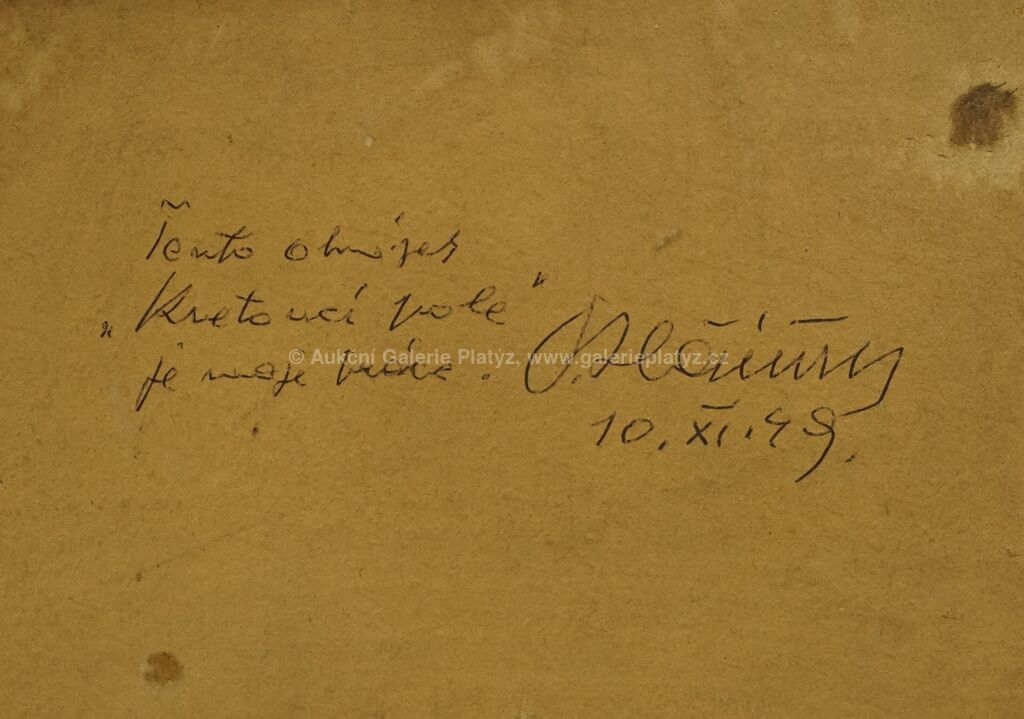 Tento obrázek
„Kvetoucí pole"
je moje práce.
10. XI. 49.
© Aukční Galerie Platýz, www.galerieplatyz.cz